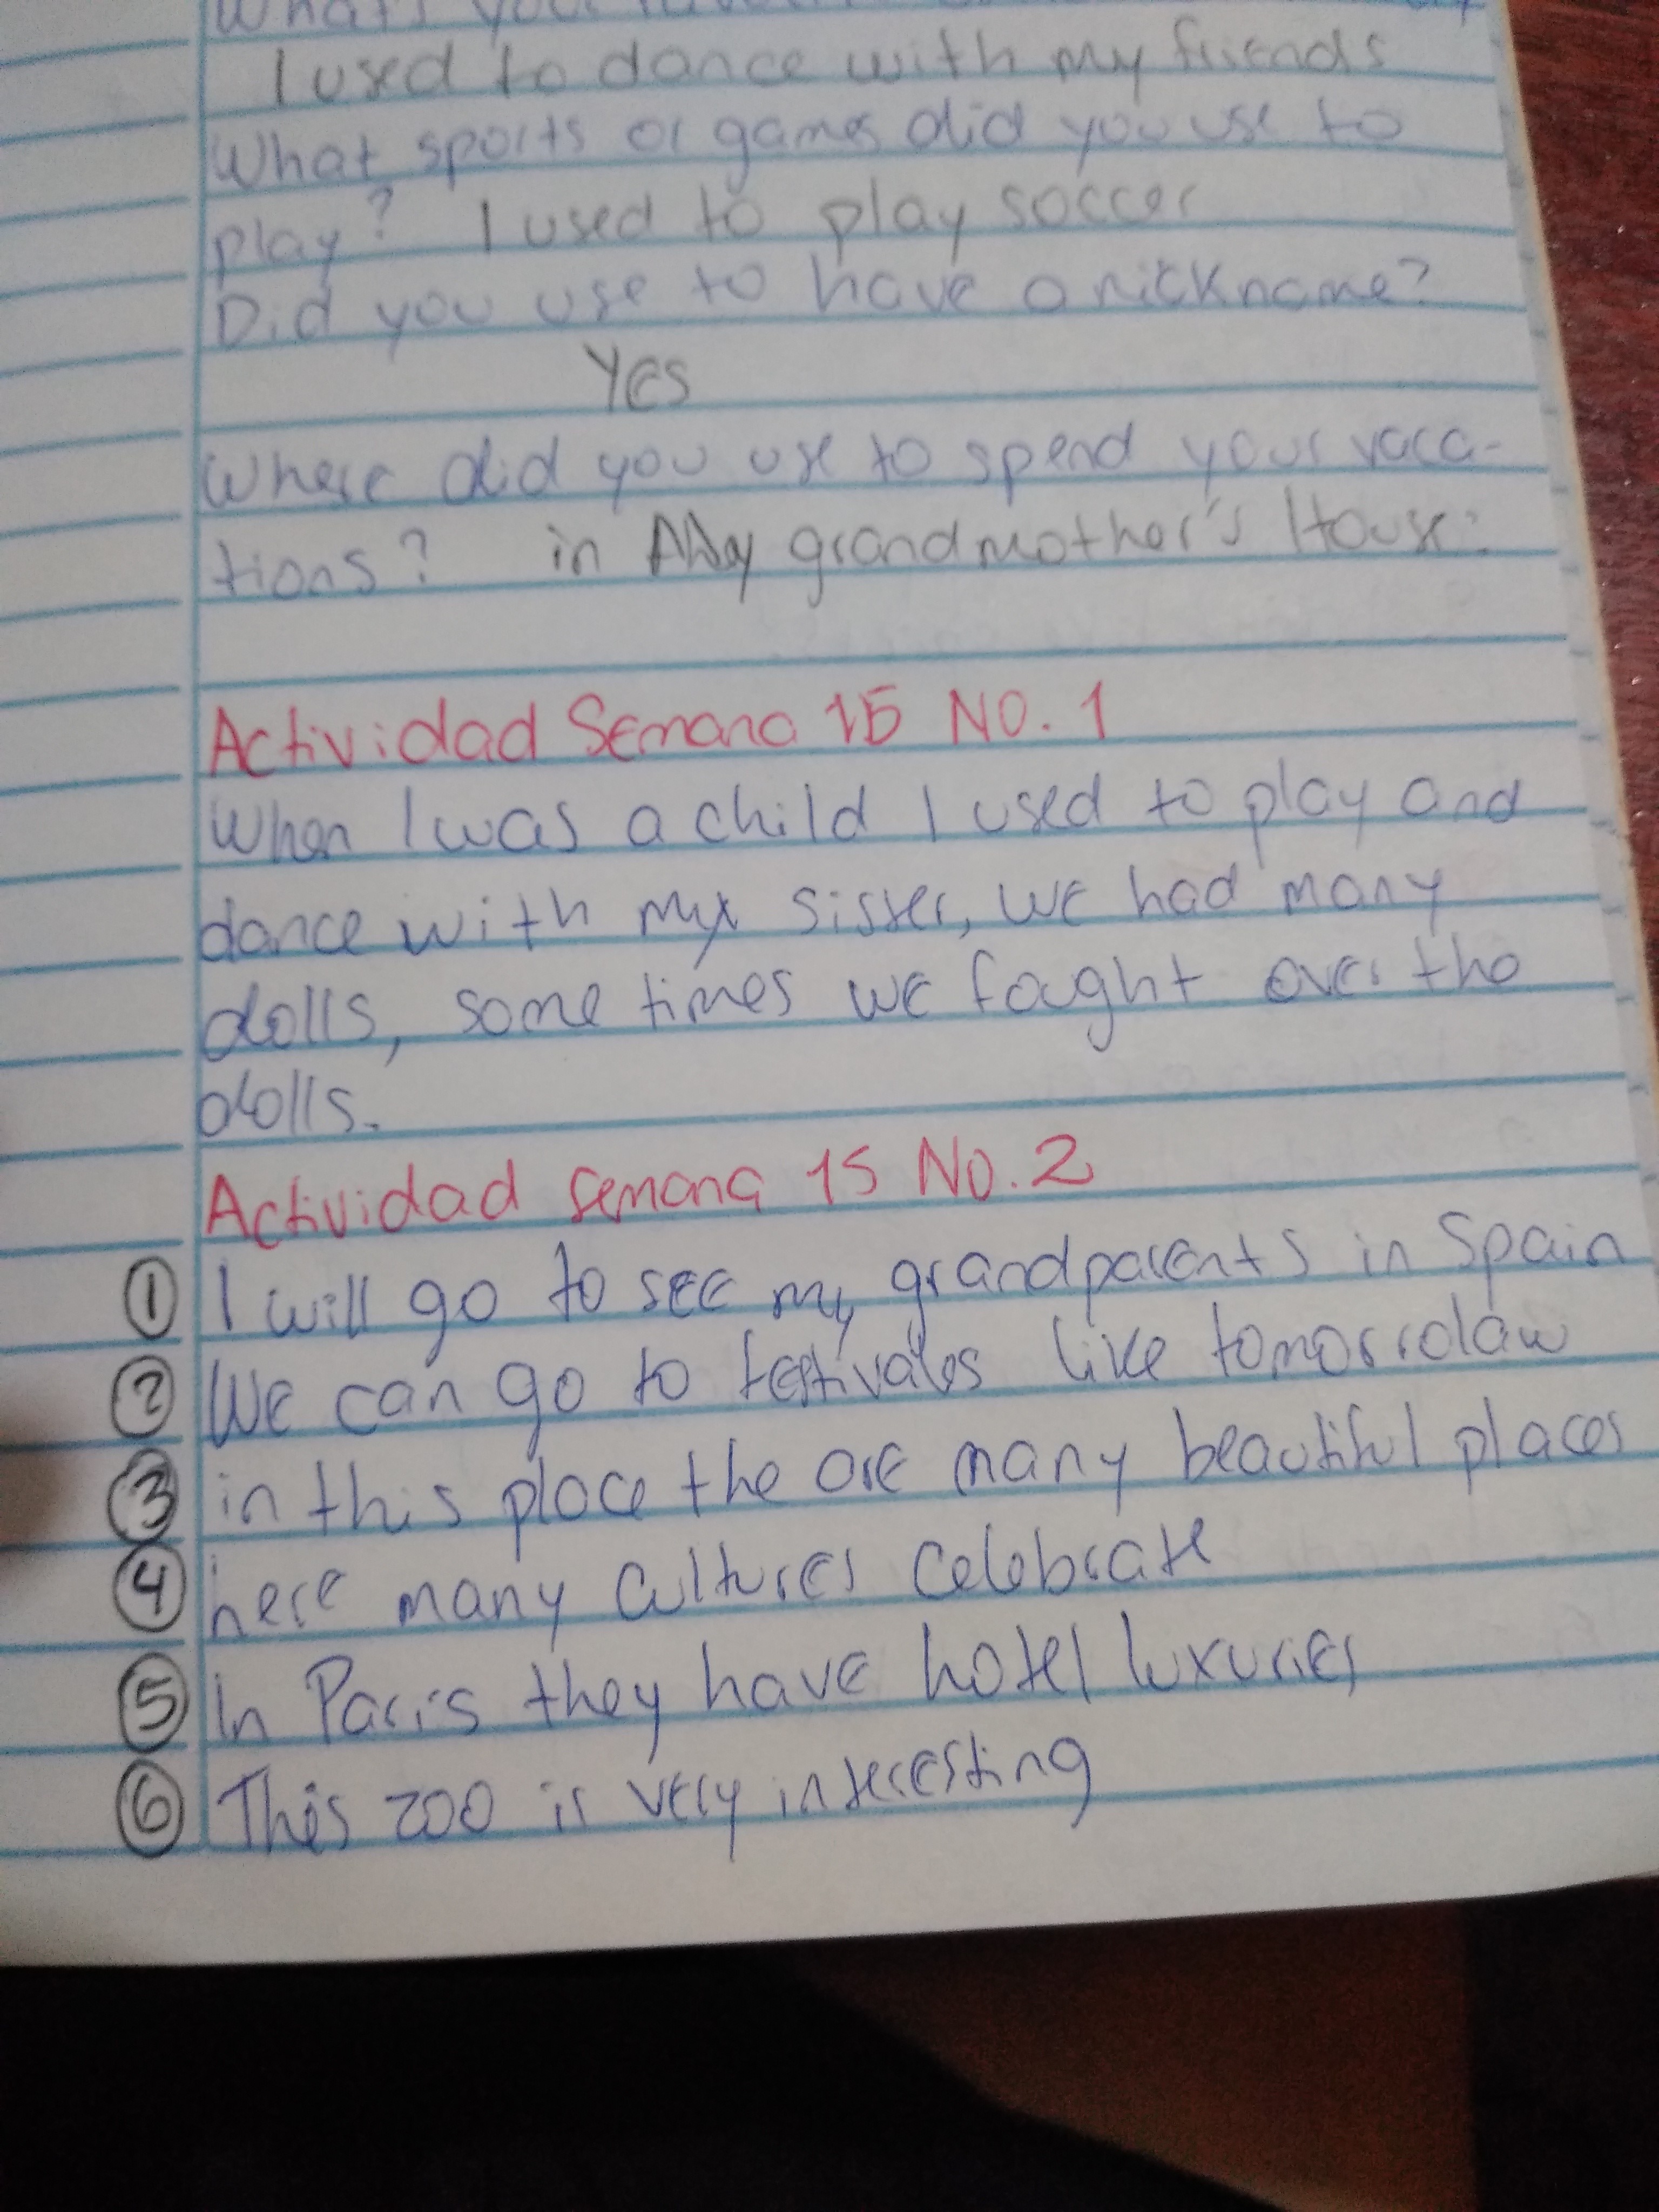 What's your
I used to dance with my friends
What sports or games did you use to
play? I used to play soccer
Did you use to have a nickname?
YES
Where did you use to spend your vaca-
tions? in My grandmother's House.
Actividad Semana 15 NO. 1
When I was a child I used to play and
dance with my sister, we had many
dolls, some times we fought over the
dolls.
Actividad semana 15 No. 2
① I will go to see my grandparents in Spain
② We can go to festivales like
③ in this place the are many beautiful places
④ here many cultures celebrate
⑤ In Paris they have hotel luxuries
⑥ This zoo is very interesting